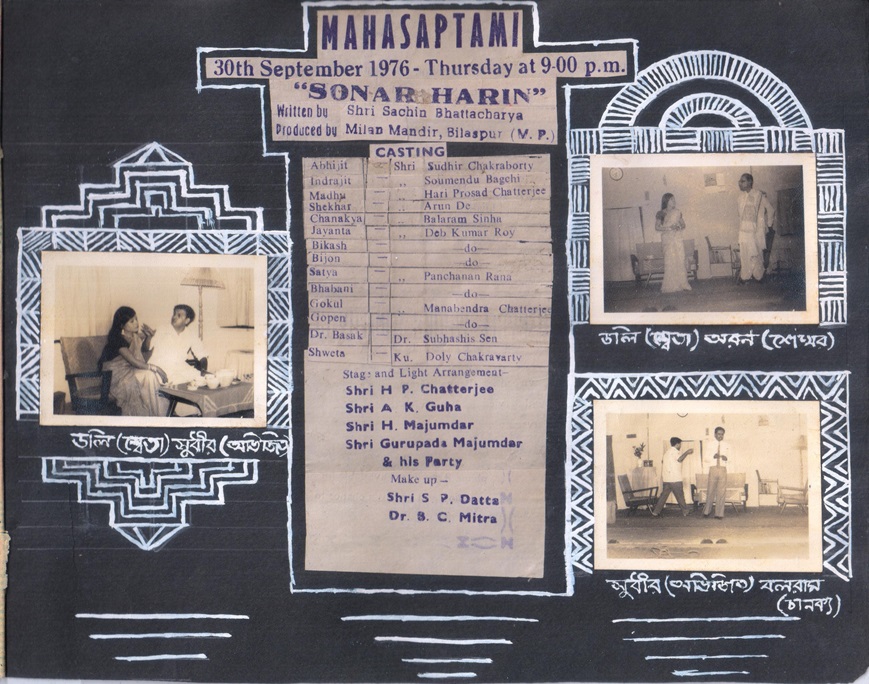 MAHASAPTAMI
30th September 1976 - Thursday at 9·00 p.m.
"SONAR HARIN"
Written by Shri Sachin Bhattacharya
Produced by Milan Mandir, Bilaspur (M. P.)
CASTING
Abhijit — Shri Sudhir Chakraborty
Indrajit — ,, Soumendu Bagchi
Madhu — ,, Hari Prosad Chatterjee
Shekhar — ,, Arun De
Chanakya — ,, Balaram Sinha
Jayanta — ,, Deb Kumar Roy
Bikash — —do—
Bijon — —do—
Satya — ,, Panchanan Rana
Bhabani — —do—
Gokul — ,, Manabendra Chatterjee
Gopen — —do—
Dr. Basak — Dr. Subhashis Sen
Shweta — Ku. Doly Chakravarty
Stage and Light Arrangement—
Shri H P. Chatterjee
Shri A K. Guha
Shri H. Majumdar
Shri Gurupada Majumdar
& his Party
Make up —
Shri S P. Datta
Dr. B. C. Mitra
ডলি (শ্বেতা) সুধীর (অভিজিত
ডলি (শ্বেতা) অরুন (শেখর)
সুধীর (অভিজিত) বলরাম
(চানক্য)